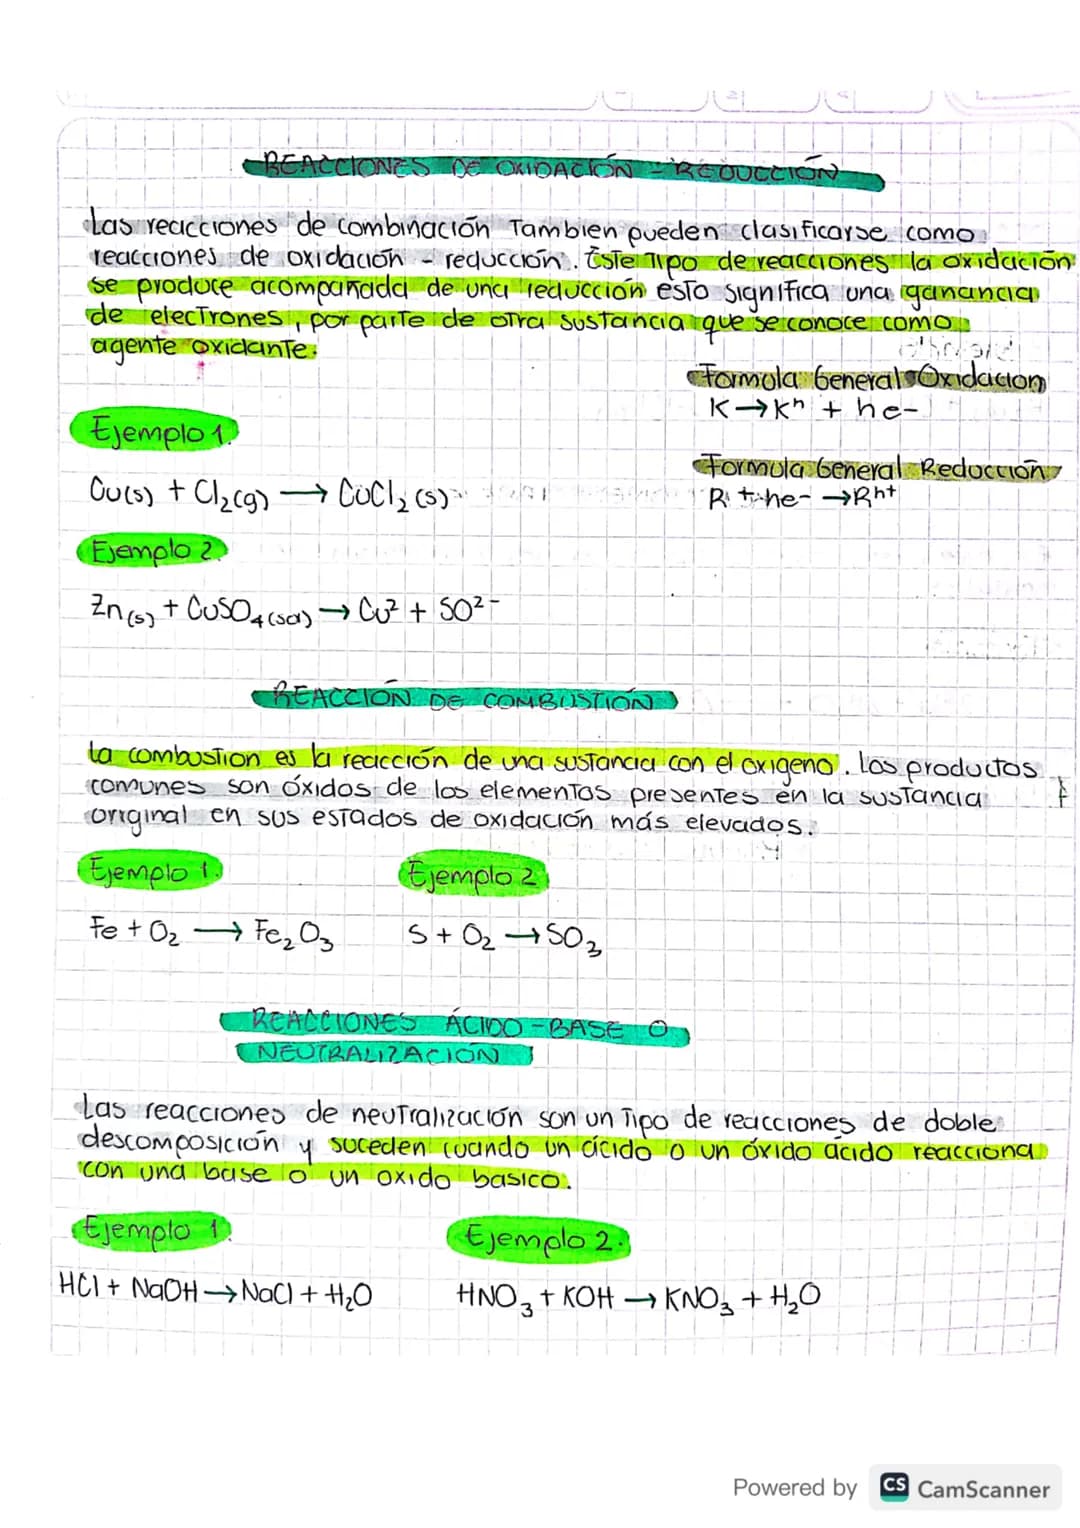 REACCIONES DE OXIDACIÓN - REDUCCIÓN
Las reacciones de combinación Tambien pueden clasificarse como
reacciones de oxidación - reducción. Este Tipo de reacciones la oxidación
se produce acompañada de una reducción esto significa una ganancia
de elecTrones, por parte de oTra sustancia que se conoce como
agente oxidante.
Formula General Oxidacion
K → Kⁿ + he-
Ejemplo 1.
Formula General Reducción
Cu(s) + Cl₂(g) → CuCl₂(s)
R + he- → Rʰ⁺
Ejemplo 2.
Zn(s) + CuSO₄(sol) → Cu² + SO²⁻
REACCIÓN DE COMBUSTIÓN
La combustion es la reacción de una susTancia con el oxigeno. Los productos
comunes son óxidos de los elementos presentes en la susTancia
original en sus esTados de oxidación más elevados.
Ejemplo 1. Ejemplo 2
Fe + O₂ → Fe₂O₃ S + O₂ → SO₃
REACCIONES ÁCIDO-BASE O
NEUTRALIZACIÓN
Las reacciones de neuTralización son un Tipo de reacciones de doble
descomposición y suceden cuando un ácido o un óxido ácido reacciona
con una base o un oxido basico.
Ejemplo 1. Ejemplo 2.
HCl + NaOH → NaCl + H₂O HNO₃ + KOH → KNO₃ + H₂O
Powered by CS CamScanner